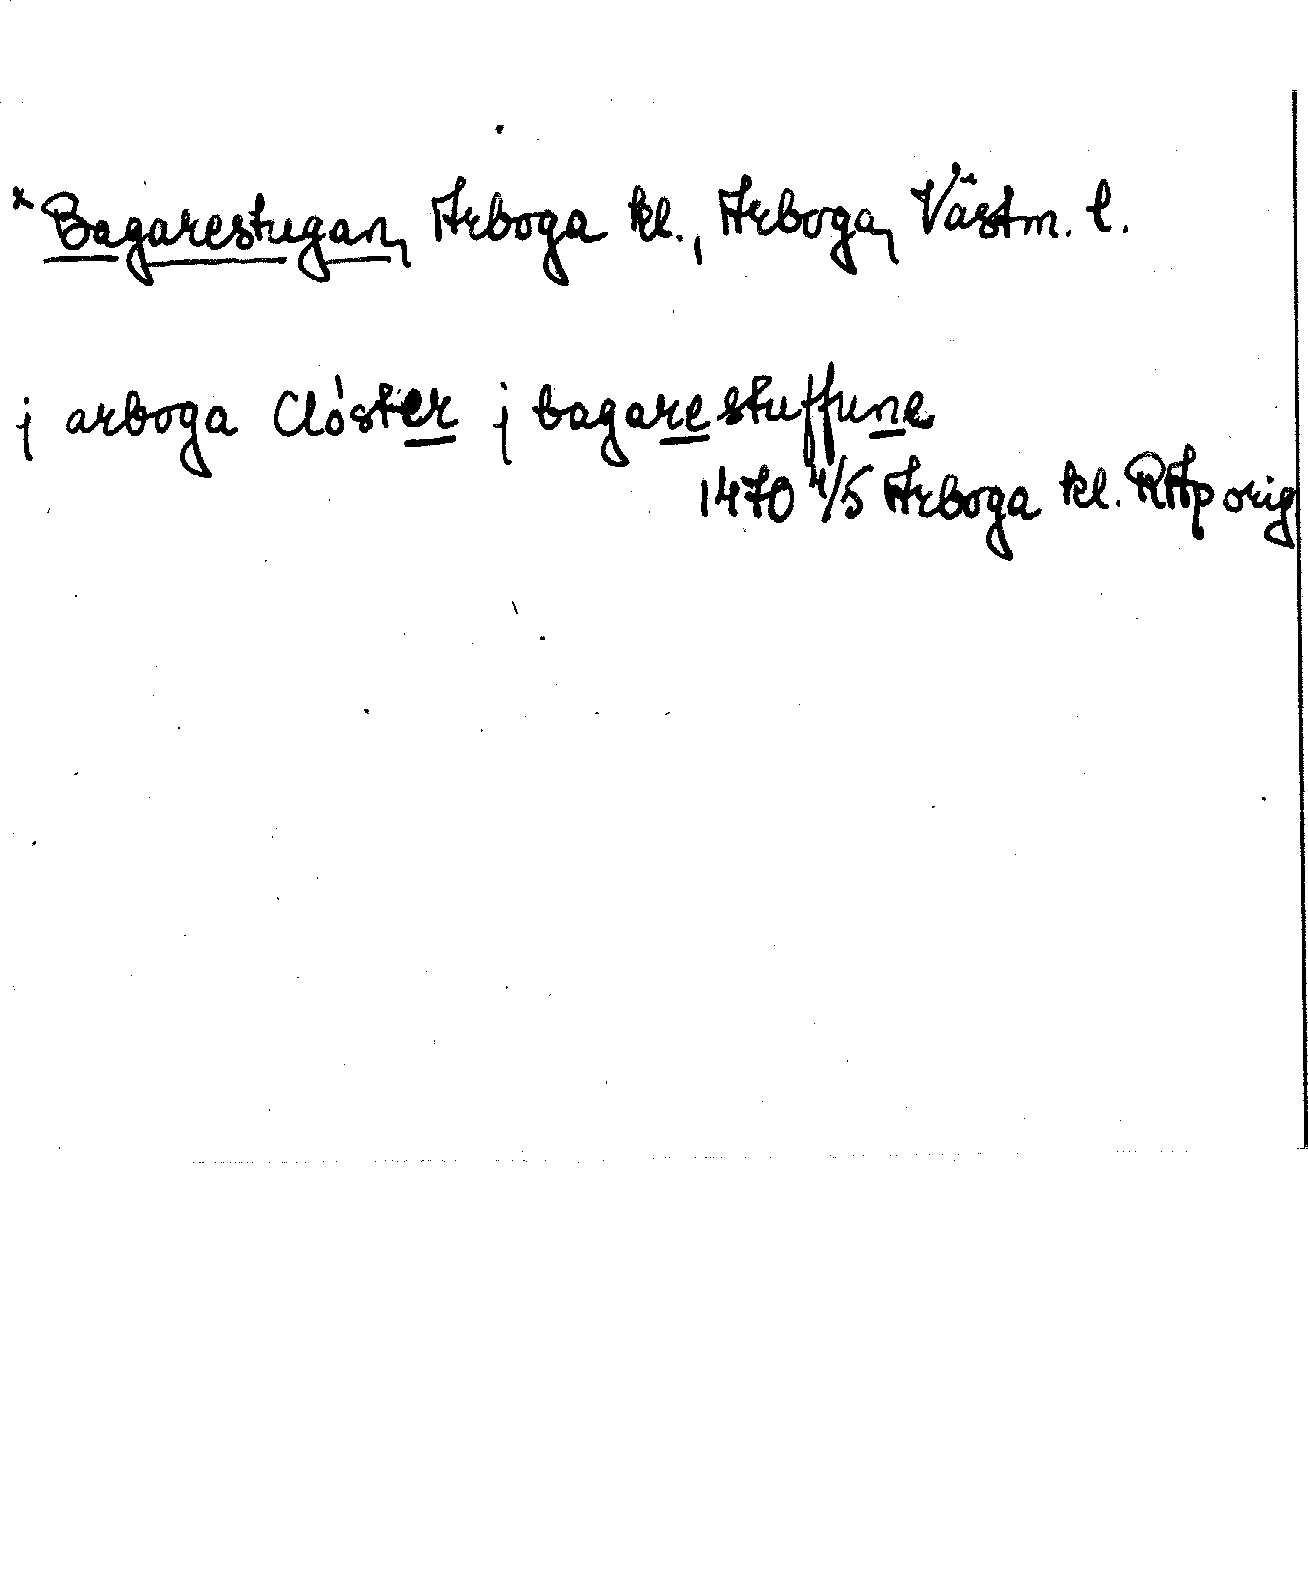 x Bagarestugan, Arboga kl., Arboga, Västm. l.
j arboga Clóster j bagarestuffune
1470 4/5 Arboga kl. RAp orig